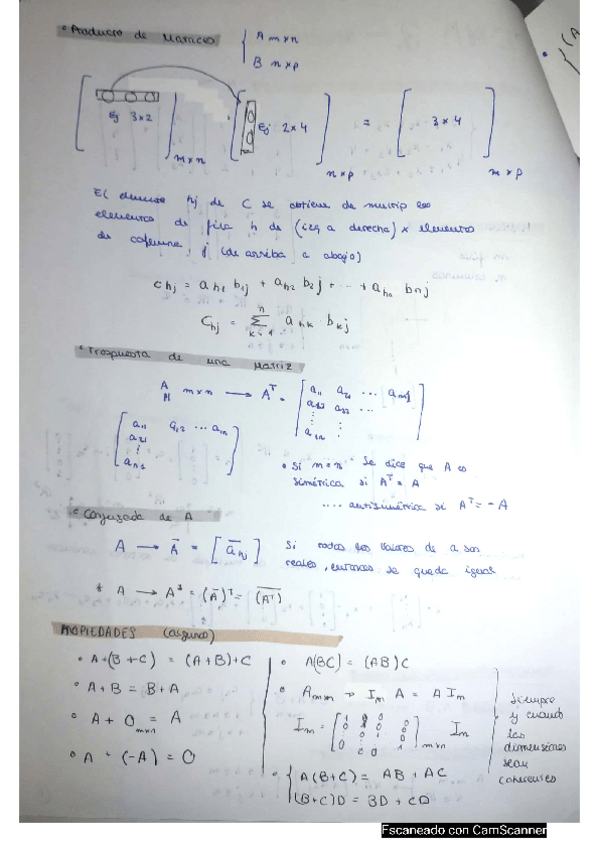 • Producto de Matrices { A m×n
B n×p
[ Ej 3×2 ] m×n [ Ej 2×4 ] n×p = [ 3×4 ] m×p
El elemento hj de C se obtiene de multip los
elementos de fila h de (izq a derecha) × elementos
de columna j (de arriba a abajo)
C hj = a h1 b 1j + a h2 b 2j + ... + a hn b nj
C hj = Σ n k=1 a hk b kj
• Traspuesta de una Matriz
A m×n → Aᵀ = [ a11 a21 ... am1
a12 a22 ...
a1n ]
[ a11 a12 ... a1n
a21
⋮
]
• Si m=n Se dice que A es
simétrica si Aᵀ = A
.... antisimétrica si Aᵀ = - A
• Conjugada de A
A → Ā = [ a̅hj ] Si todos los valores de a son
reales, entonces se queda igual
* A → A* = (Ā)ᵀ = (Aᵀ)̅
PROPIEDADES (algunas)
• A+(B+C) = (A+B)+C
• A+B = B+A
• A + O m×n = A
• A + (-A) = O
• A(BC) = (AB)C
• A m×m → Im A = A Im
Im = [ 1 0 0 0 ... 0 1 ] m×m Im
• { A(B+C) = AB + AC
(B+C)D = BD + CD
Siempre
y cuando
las
dimensiones
sean
coherentes
Escaneado con CamScanner